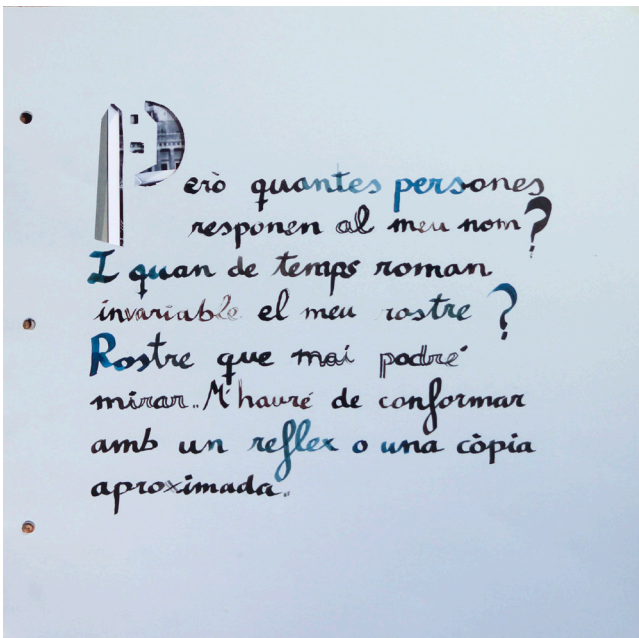 Però quantes persones
responen al meu nom?
I quan de temps roman
invariable el meu rostre?
Rostre que mai podré
mirar.. M'hauré de conformar
amb un reflex o una còpia
aproximada..